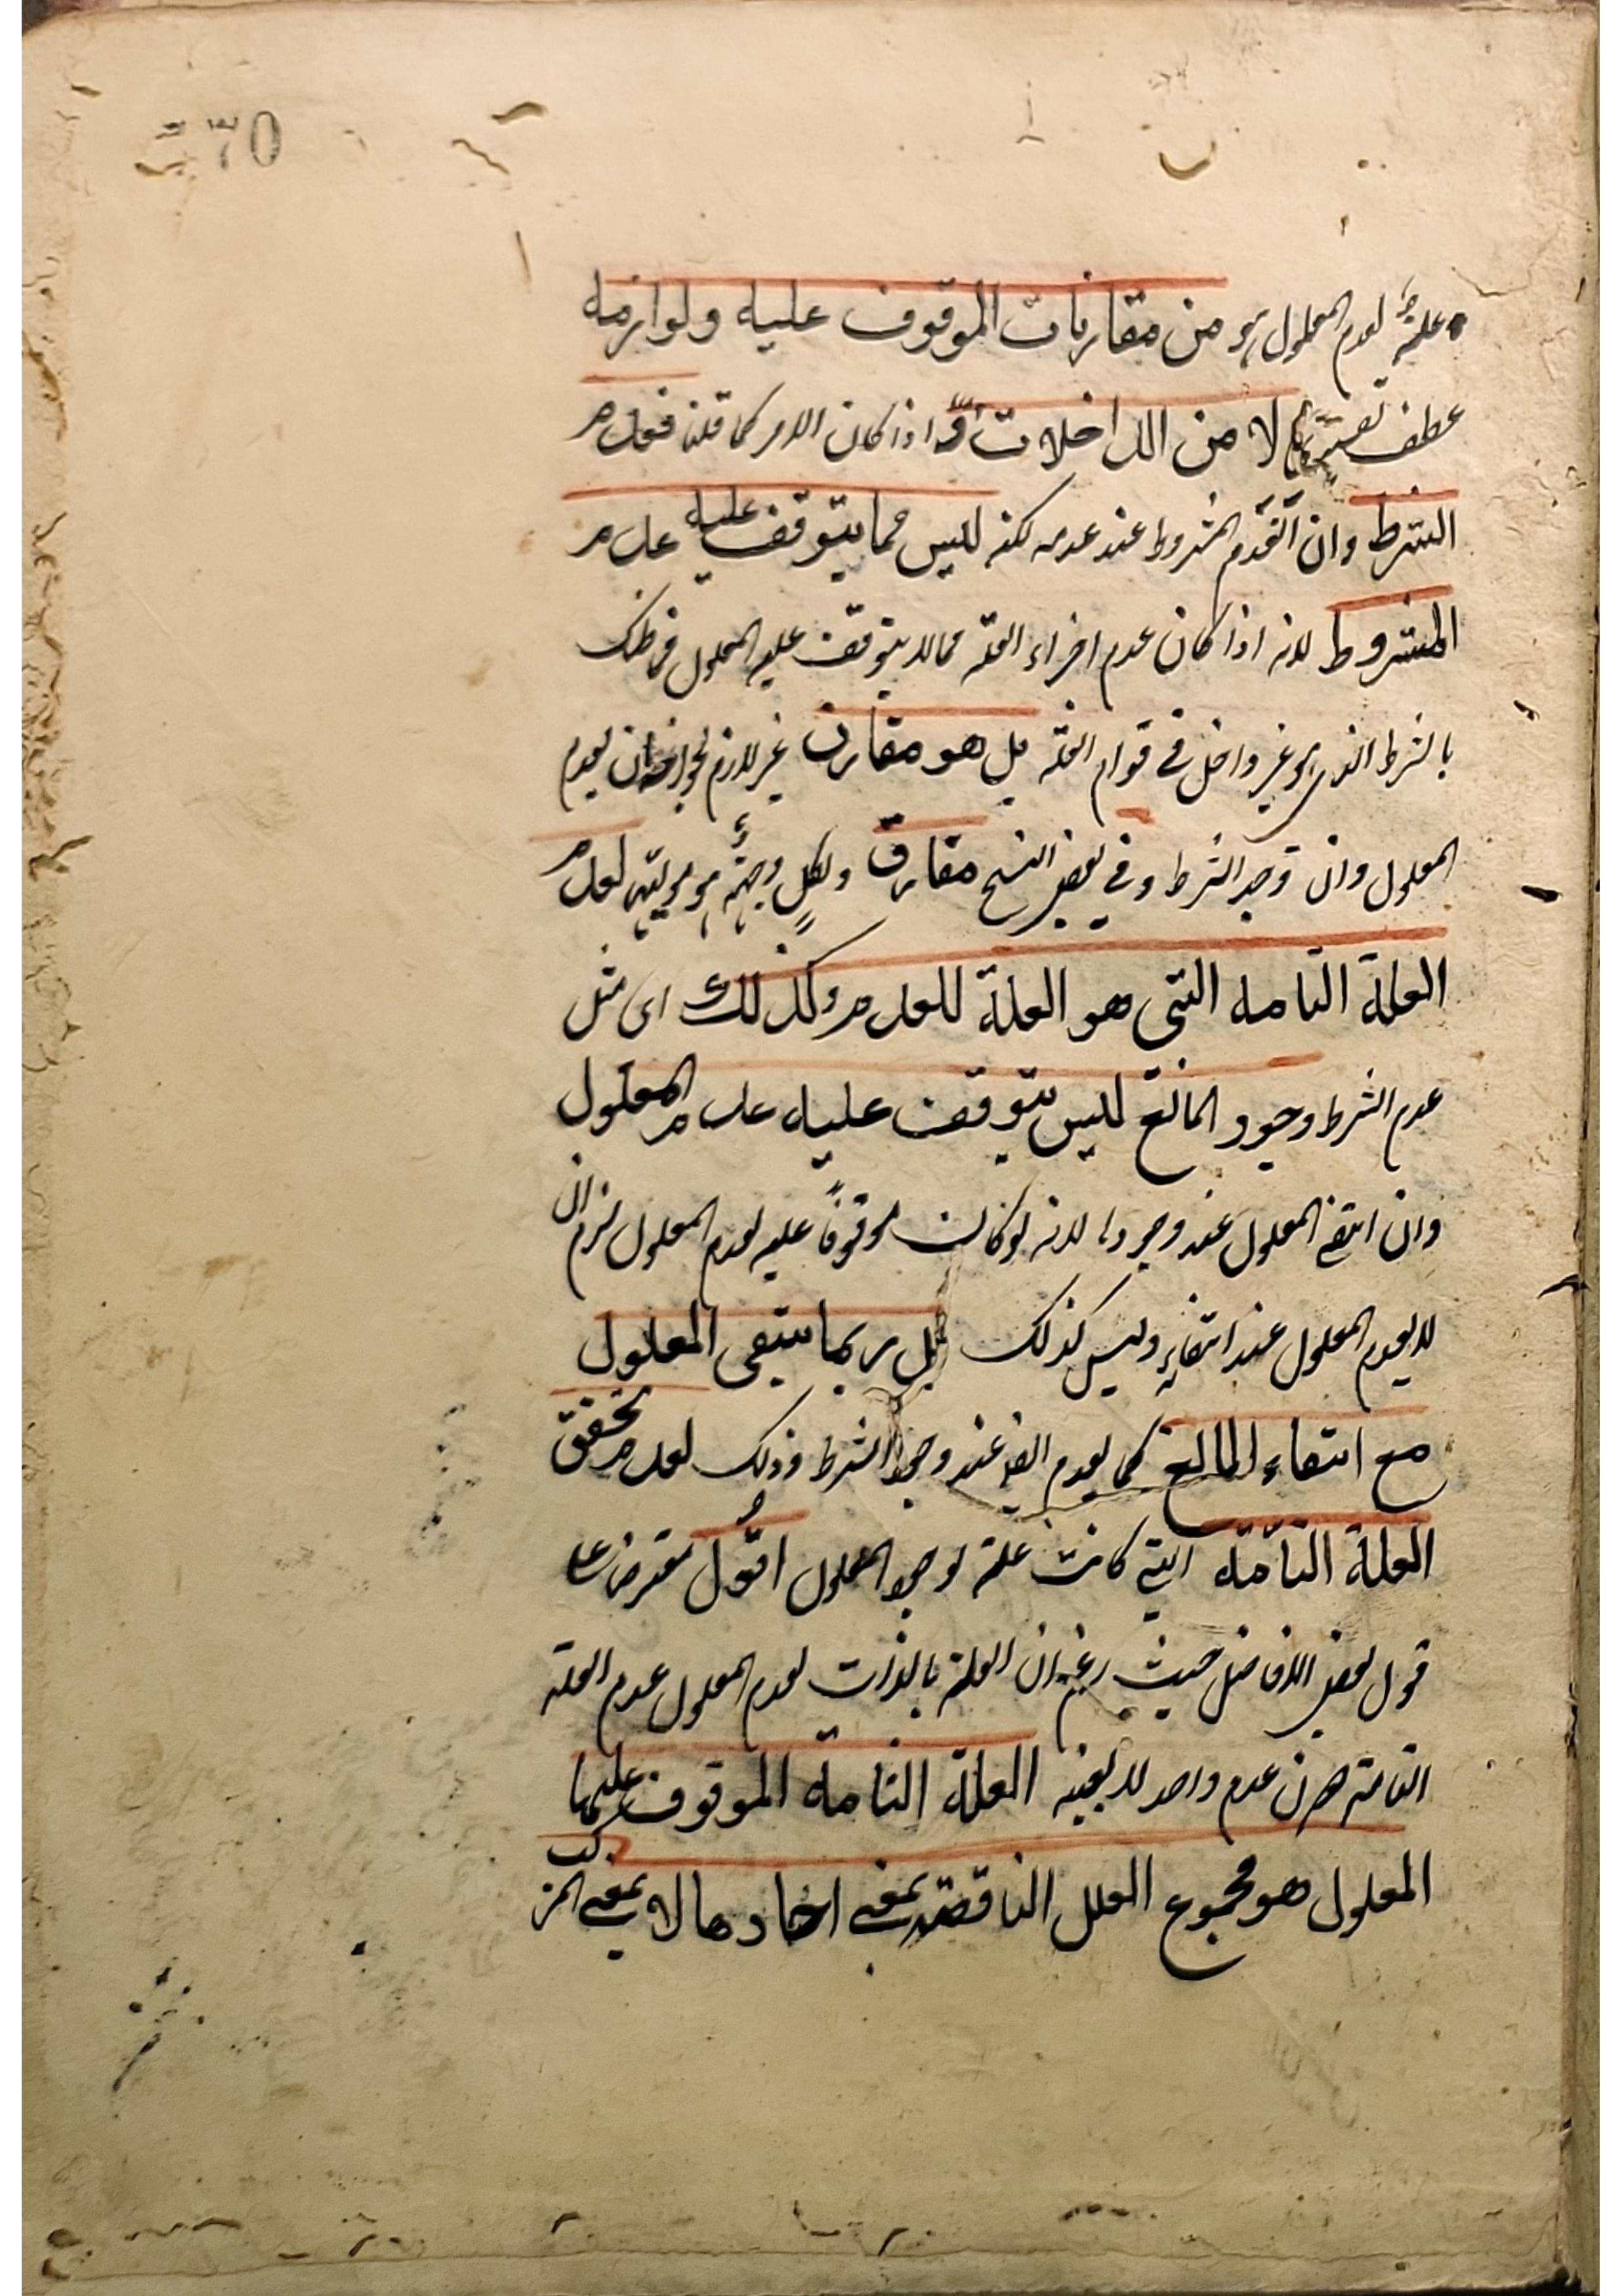 علة لعدم المعلول هو من مقارنات الموقوف عليه ولوازمه
عطف تفسير لا من الداخلات اذا كان الامر كما قلنا فعدم
الشرط وان انعدم المشروط عند عدمه لكنه ليس مما يتوقف عليه عدم
المشروط لانه اذا كان عدم اجزاء العلة مما لا يتوقف عليه المعلول فما ظنك
بالشرط الذي هو غير داخل في قوام العلة بل هو مقارن غير لازم لجواز ان يعدم
المعلول وان وجد الشرط وفي بعض النسخ مقارق ولكل وجهة هو موليها لعدم
العلة التامه التى هو العلة للعدم وكذلك اى مثل
عدم الشرط وجود المانع ليس يتوقف عليه عدم المعلول
وان انتفى المعلول عند وجوده لانه لو كان موقوفا عليه لعدم المعلول لزم ان
لا يعدم المعلول عند انتفائه وليس كذلك بل ربما ينتفى المعلول
مع انتفاء المانع كما يعدم ايضا عند وجود الشرط وذلك لعدم تحقق
العلة التامة التي كانت علة لوجود المعلول اقول معترضا على
قول بعض الافاضل حيث زعم ان العلة بالذات لعدم المعلول عدم العلة
التامة عدم واحد لا بعينه العلة التامة الموقوف عليها
المعلول هو مجموع العلل الناقصة بمعنى احادها لا بمعنى المركب